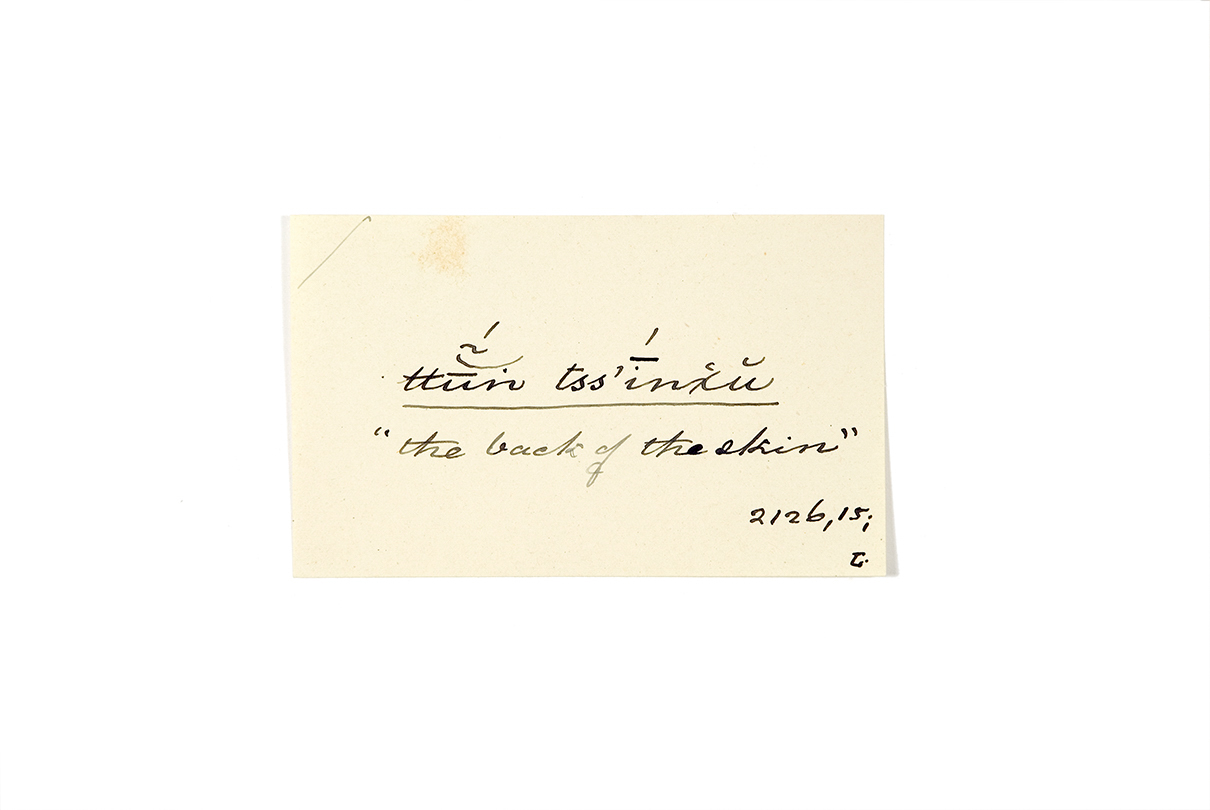 ttṹ̄in tss'ī́nx̌ŭ
"the back of the skin"
2126,15;